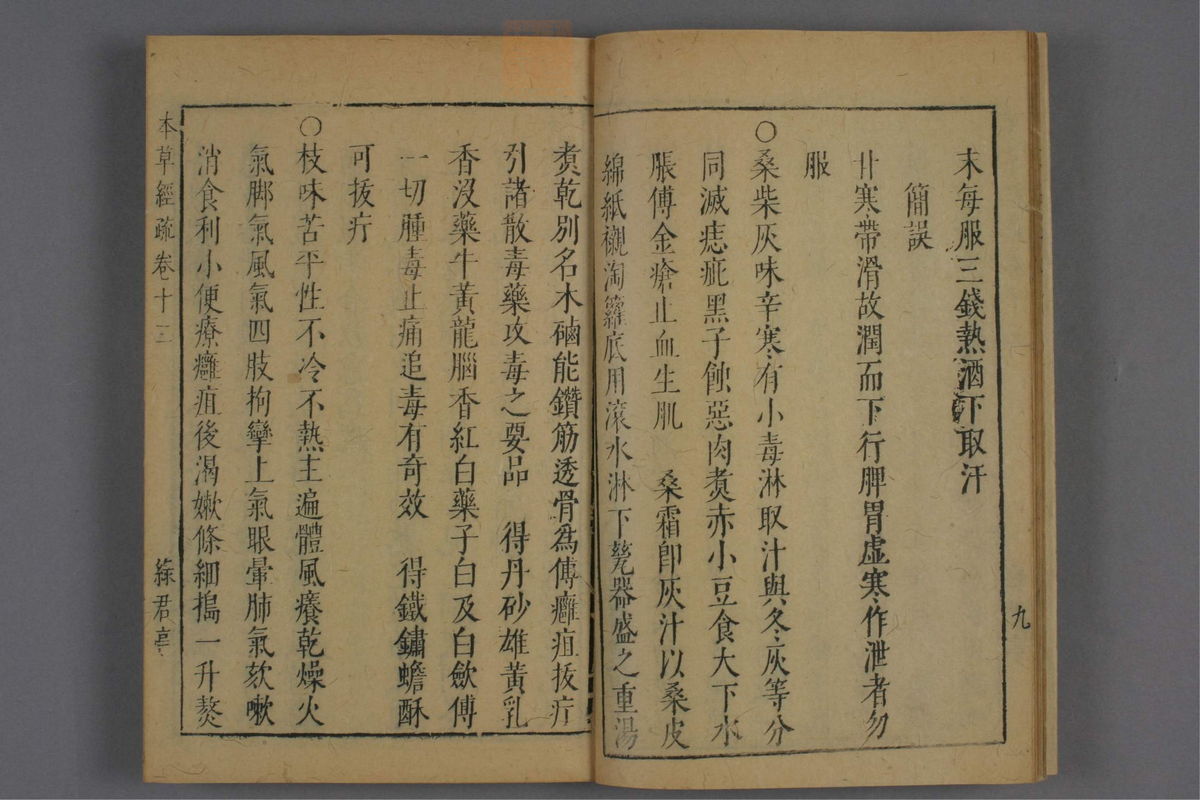 末每服三錢熱酒下取汗
簡誤
甘寒帶滑故潤而下行脾胃虛寒作泄者勿
服
○桑柴灰味辛寒有小毒淋取汁與冬灰等分
同滅痣疵黑子蝕惡肉煑赤小豆食大下水
脹傅金瘡止血生肌　桑霜卽灰汁以桑皮
綿紙襯淘籮底用滾水淋下甆器盛之重湯
九
煑乾別名木硇能鑽筋透骨爲傅癰疽拔疔
引諸散毒藥攻毒之要品　得丹砂雄黃乳
香沒藥牛黃龍腦香紅白藥子白及白歛傅
一切腫毒止痛追毒有奇效　得鐵鏽蟾酥
可拔疔
○枝味苦平性不冷不熱主遍體風癢乾燥火
氣脚氣風氣四肢拘攣上氣眼暈肺氣欬嗽
消食利小便療癰疽後渴嫰條細搗一升熬
本草經疏卷十三
綠君亭